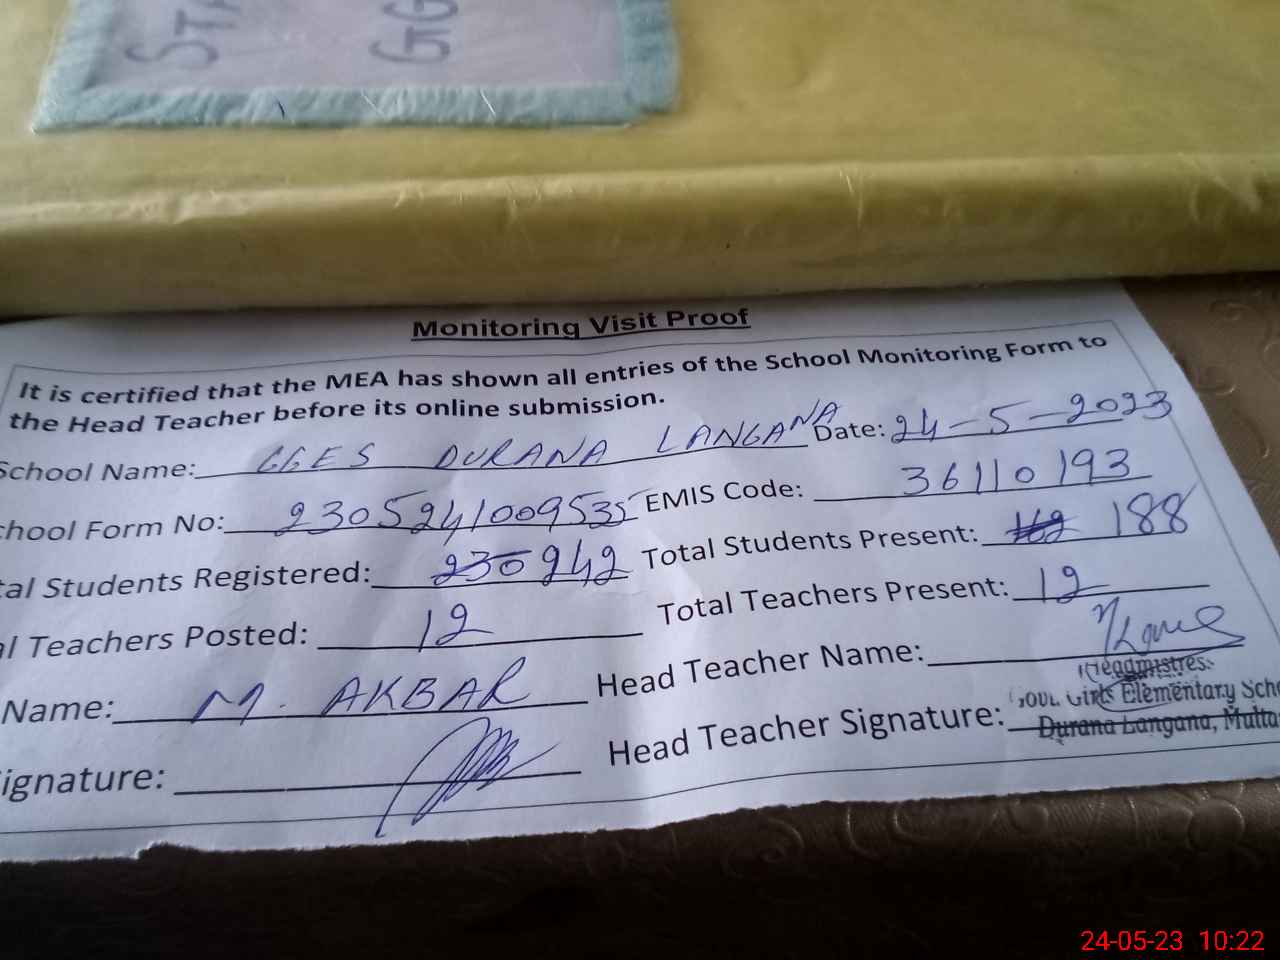 STA
GG
Monitoring Visit Proof
It is certified that the MEA has shown all entries of the School Monitoring Form to
the Head Teacher before its online submission.
School Name: GGES DURANA LANGANA Date: 24-5-2023
chool Form No: 2305241009535 EMIS Code: 36110193
tal Students Registered: 230 242 Total Students Present: 162 188
al Teachers Posted: 12 Total Teachers Present: 12
Name: M. AKBAR Head Teacher Name:
Headmistres
Govt. Girls Elementary Scho
ignature: Head Teacher Signature:
Durana Langana, Multa
24-05-23 10:22